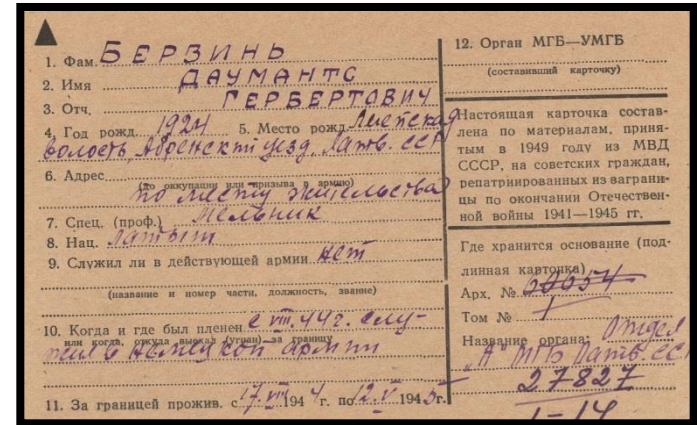 1. Фам. БЕРЗИНЬ
2. Имя ДАУМАНТС
3. Отч. ГЕРБЕРТОВИЧ
4. Год рожд. 1924 5. Место рожд. Лиепская
волость, Абренский уезд, Латв. ССР
6. Адрес
(до оккупации или призыва в армию)
по месту жительства
7. Спец. (проф.) Мельник
8. Нац. Латыш
9. Служил ли в действующей армии нет
(название и номер части, должность, звание)
10. Когда и где был пленен с VIII.44г. слу-
или когда, откуда выехал (угнан) за границу
жил в немецкой армии
11. За границей прожив. с 17.VIII 1944 г. по 12.V 1945г.
12. Орган МГБ—УМГБ
(составивший карточку)
Настоящая карточка состав-
лена по материалам, приня-
тым в 1949 году из МВД
СССР, на советских граждан,
репатриированных из заграни-
цы по окончании Отечествен-
ной войны 1941—1945 гг.
Где хранится основание (под-
линная карточка)
Арх. №
Том № 1
Название органа: Отдел
"А" МГБ Латв. ССР
27827
1-14